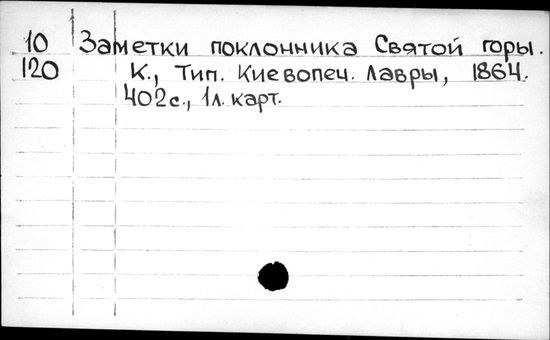 10 Заметки поклонника Святой горы.
120 К., Тип. Киевопеч. Лавры, 1864.
402с., 1л. карт.